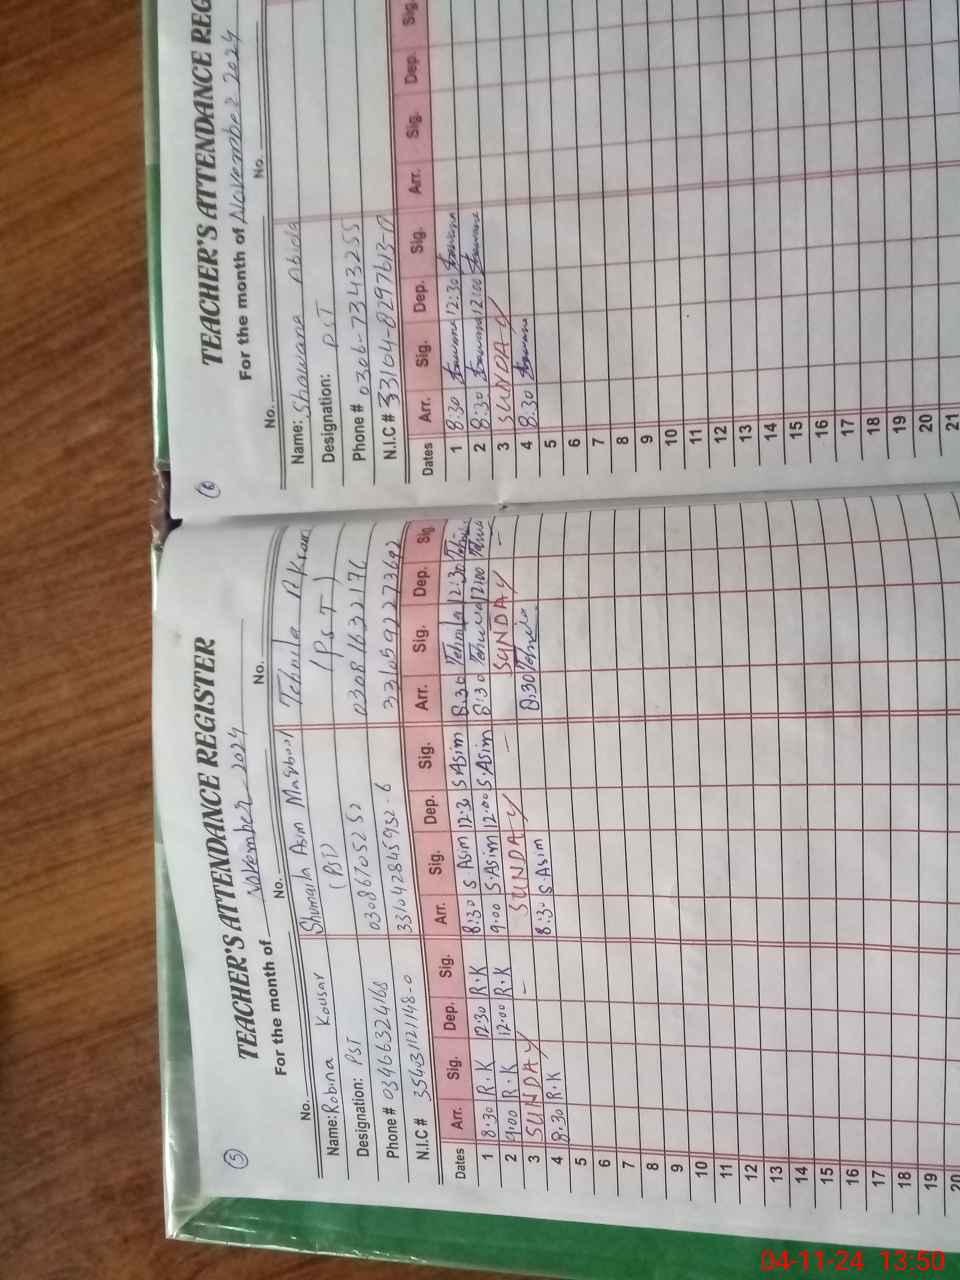 5
TEACHER'S ATTENDANCE REGISTER
For the month of November 2024
No. No. No.
Name: Robina Kousar Shumaila Asim Maqbool Tehmila Akram
Designation: PST (PST) (PST)
Phone # 03466324168 03086705252 03081632176
N.I.C # 354031121148-0 3310428459 32-6 3310592273692
Dates Arr. Sig. Dep. Sig. Arr. Sig. Dep. Sig. Arr. Sig. Dep. Sig.
1 8:30 R.K 12:30 R.K 8:30 S.Asim 12:30 S.Asim 8:30 Tehmila 12:30
2 9:00 R.K 12:00 R.K 9:00 S.Asim 12:00 S.Asim 8:30 Tehmila 12:00
3 SUNDAY – SUNDAY – SUNDAY –
4 8:30 R.K 8:30 S.Asim 8:30 Tehmila
5
6
7
8
9
10
11
12
13
14
15
16
17
18
19
20
6
TEACHER'S ATTENDANCE REG
For the month of November 2024
No. No.
Name: Shawana Abida
Designation: PST
Phone # 0306-7343255
N.I.C # 33104-8297613-
Dates Arr. Sig. Dep. Sig. Arr. Sig. Dep. Sig.
1 8:30 Shawana 12:30 Shawana
2 8:30 Shawana 12:00 Shawana
3 SUNDAY
4 8:30 Shawana
5
6
7
8
9
10
11
12
13
14
15
16
17
18
19
20
21
04-11-24 13:50